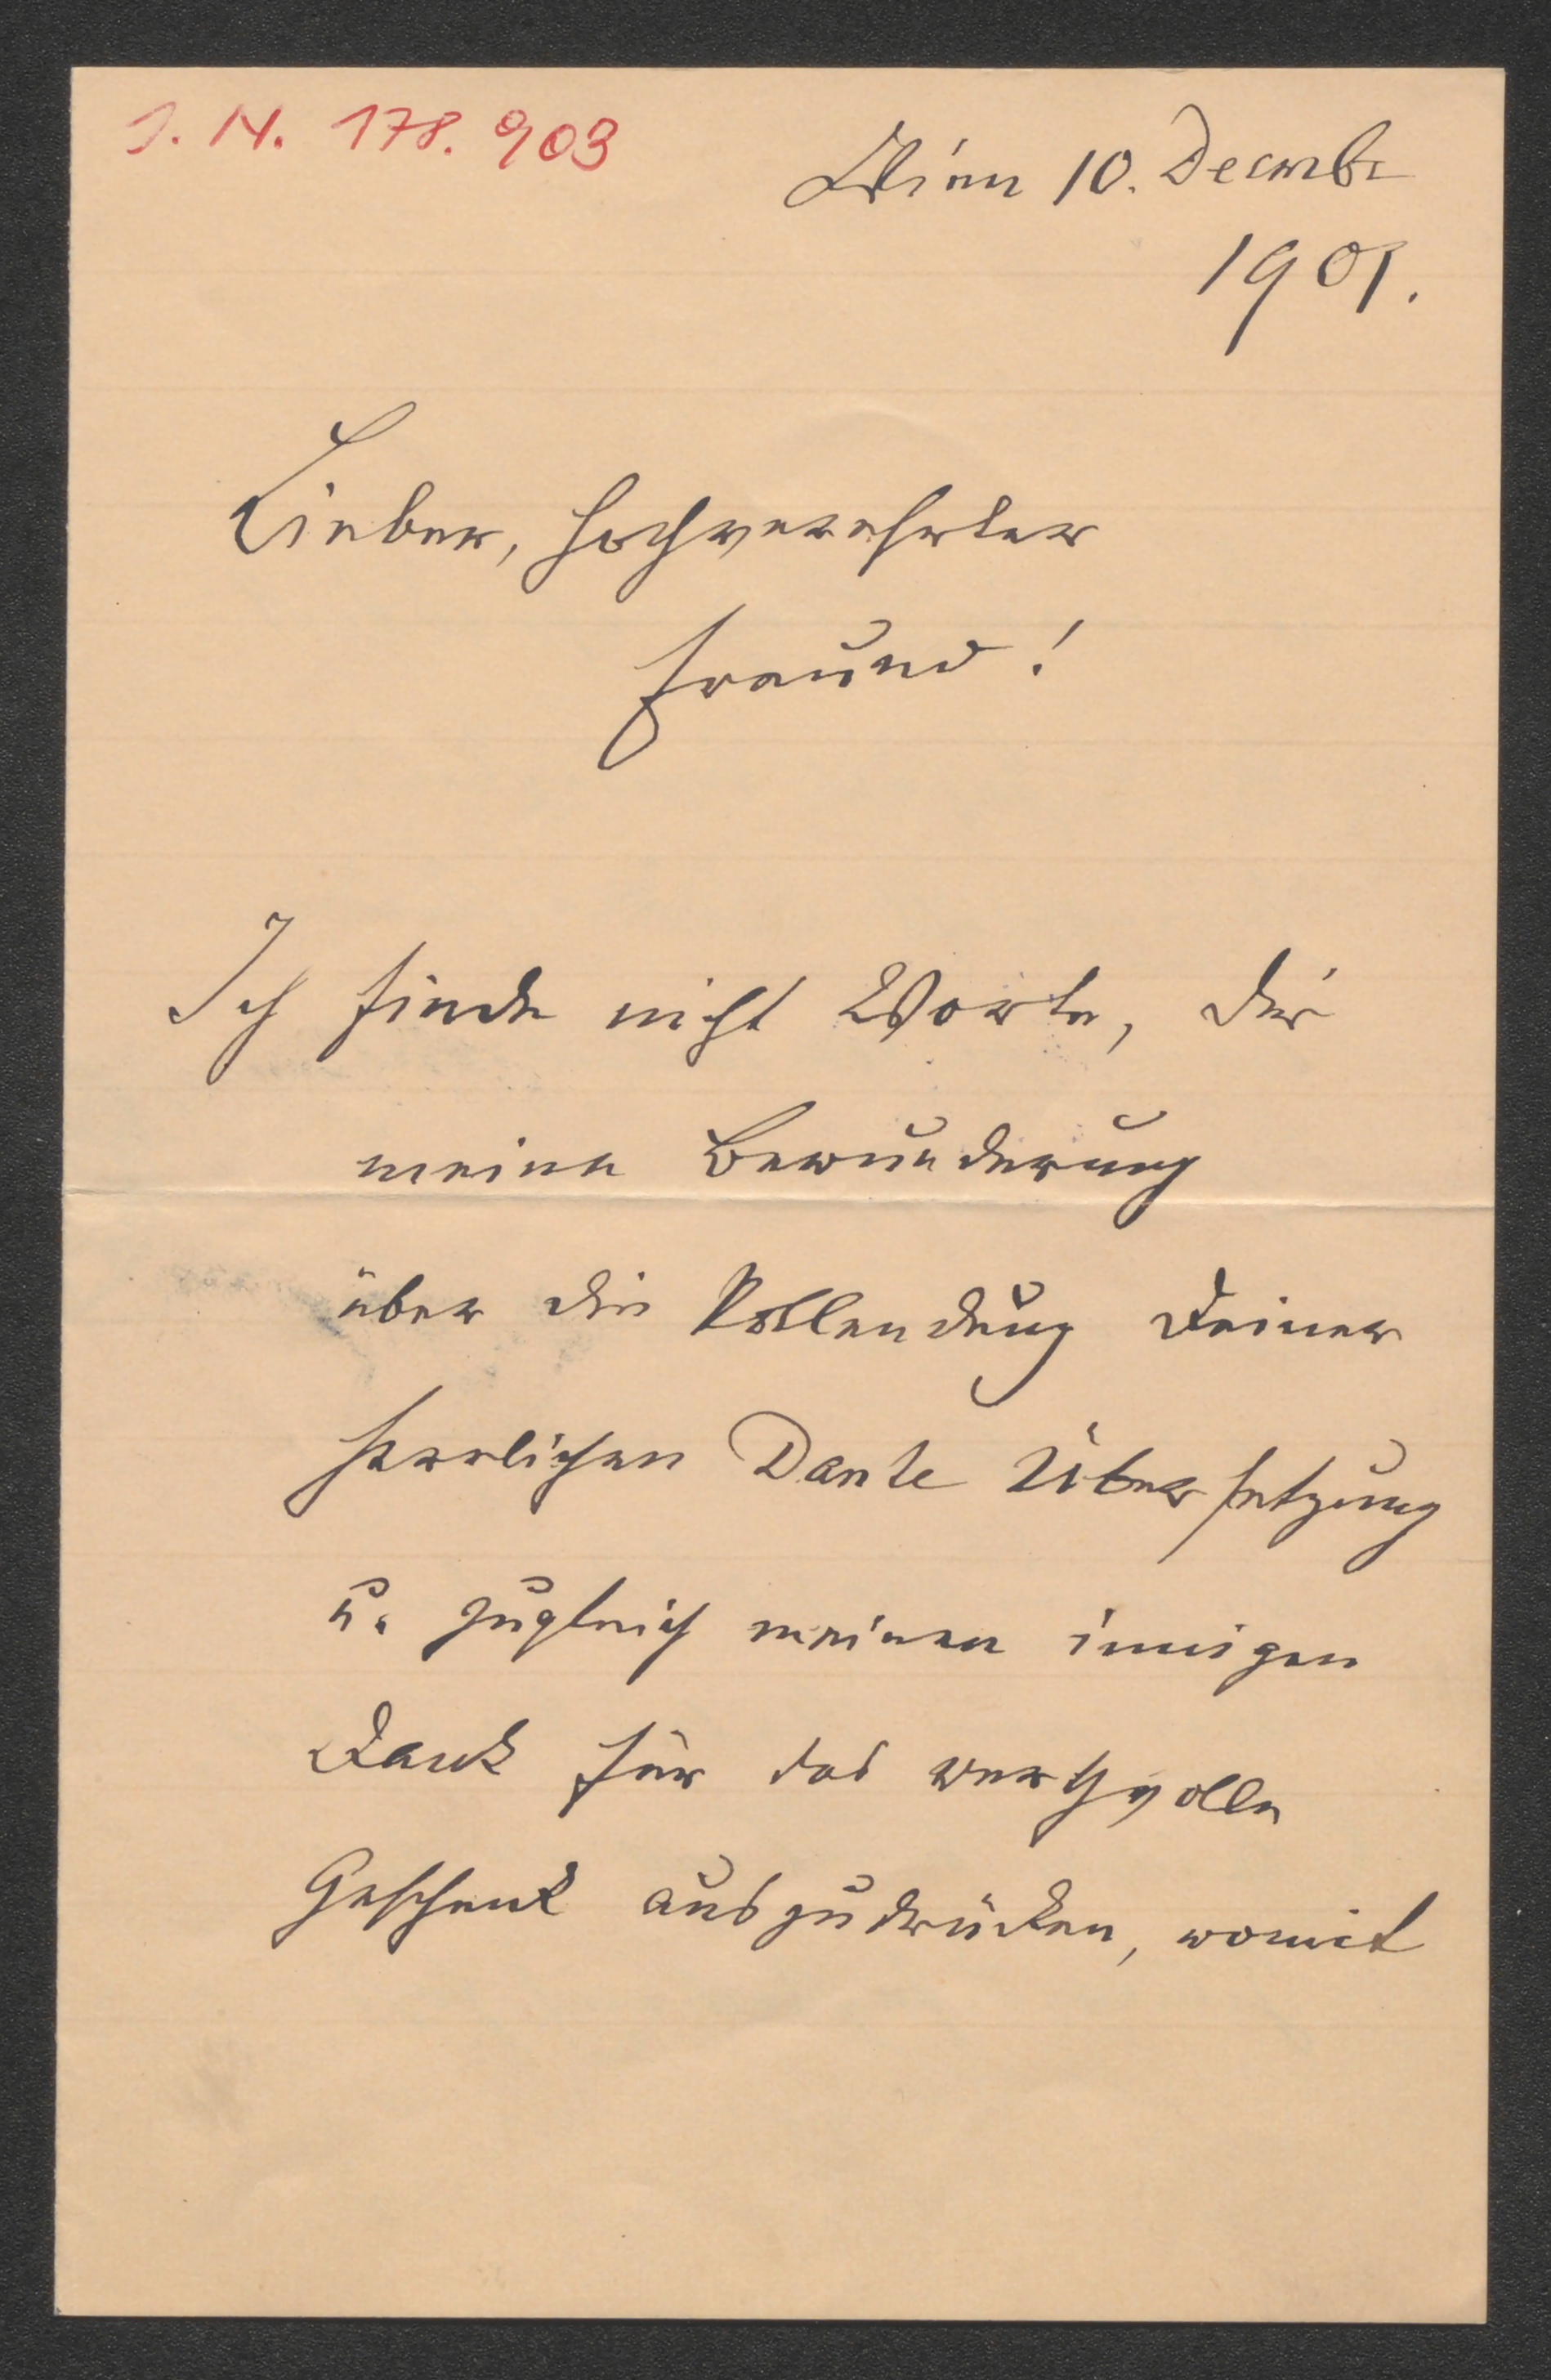 J. N. 178.903
Wien 10. Decembr
1901.
Lieber, hochverehrter
Freund!
Ich finde nicht Worte, Dir
meine Bewunderung
über die Vollendung Deiner
herrlichen Dante Übersetzung
u. zugleich meinen innigen
Dank für das werthvolle
Geschenk auszudrücken, womit